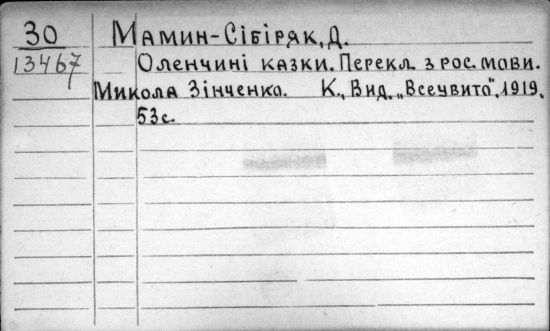 30 Мамин-Сібіряк, Д.
13467 Оленчині казки. Перекл. з рос. мови.
Микола Зінченко. К., Вид. „Всеувито", 1919.
53с.